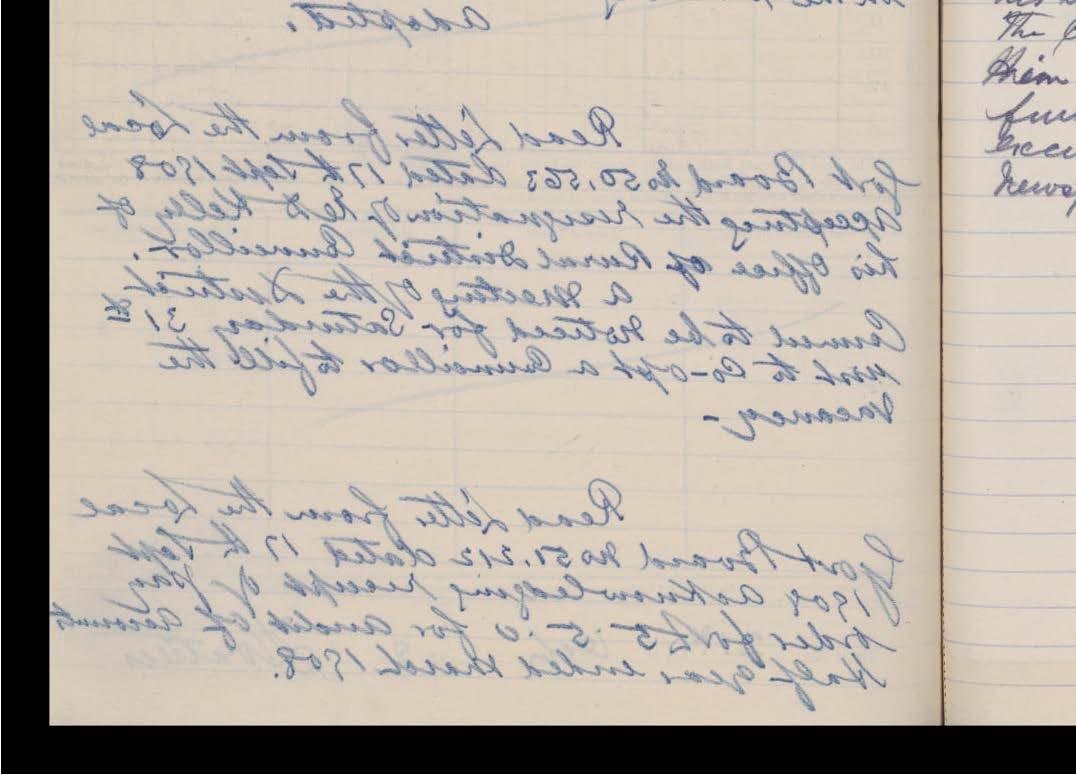 in the
adopted.
Read Letter from the Local
Govt Board No 50,563 dated 17th Sept 1908
accepting the resignation of Kelly of
his office of Rural District Councillor.
A Meeting of the District
Council to be noticed for Saturday 31st
inst to Co-opt a Councillor to fill the
vacancy -
Read Letter from the Local
Govt Board No 51,212 dated 17th Sept
1908 acknowledging receipt of Pay
order for £5 . 5 . 0 for audit of accounts
Half year ended March 1908.
The
them